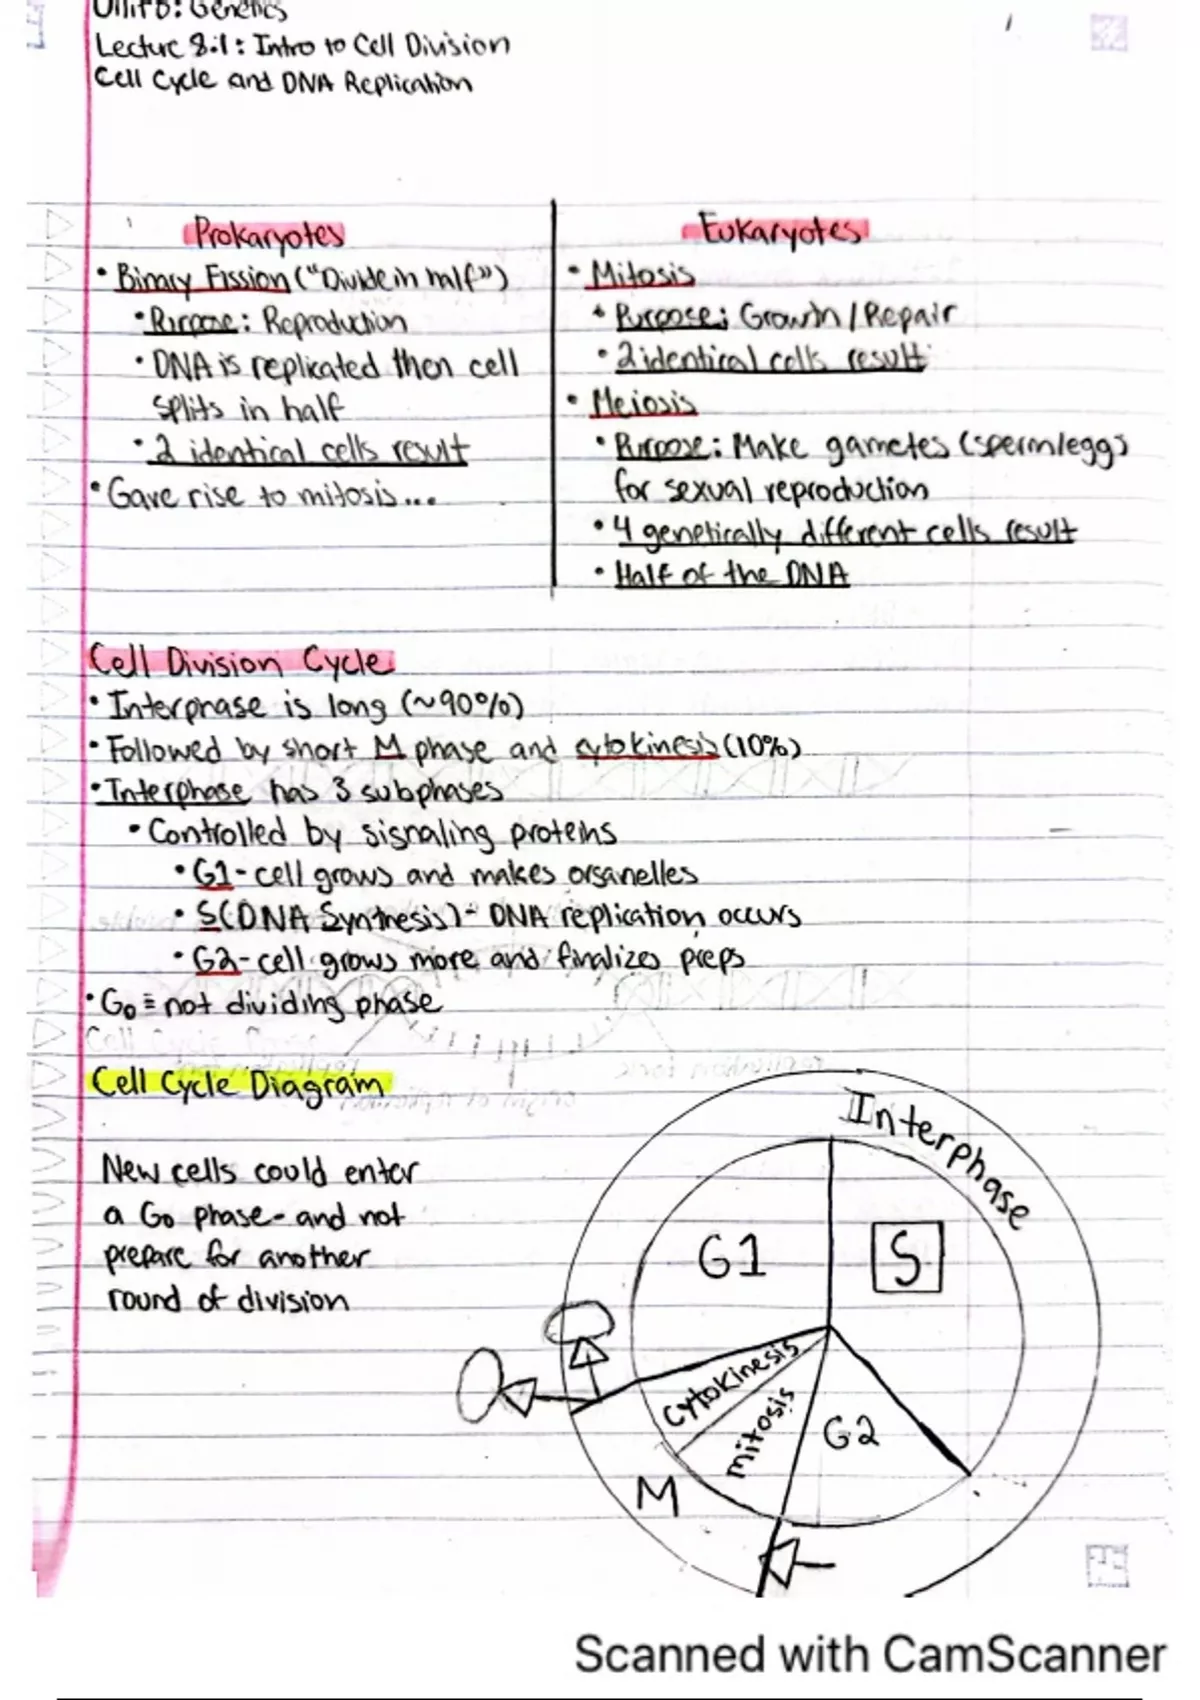 Genetics
Lecture 8.1: Intro to Cell Division
Cell Cycle and DNA Replication
Prokaryotes
• Binary Fission ("Divide in half")
• Purpose: Reproduction
• DNA is replicated then cell
splits in half
• 2 identical cells result
• Gave rise to mitosis...
Eukaryotes
• Mitosis
• Purpose: Growth / Repair
• 2 identical cells result
• Meiosis
• Purpose: Make gametes (sperm/egg)
for sexual reproduction
• 4 genetically different cells result
• Half of the DNA
Cell Division Cycle
• Interphase is long (~90%)
• Followed by short M phase and cytokinesis (10%)
• Interphase has 3 subphases
• Controlled by signaling proteins
• G1- cell grows and makes organelles
• S (DNA Synthesis)- DNA replication occurs
• G2- cell grows more and finalizes preps
• G0 ≡ not dividing phase
Cell Cycle Diagram
New cells could enter
a G0 phase- and not
prepare for another
round of division
Interphase
G1
S
Cytokinesis
mitosis
G2
M
Scanned with CamScanner